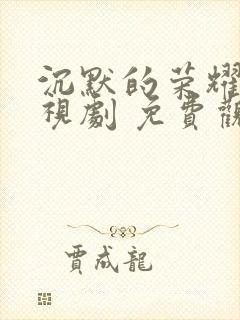 沉默的荣耀
視劇 免費觀
賈成龍